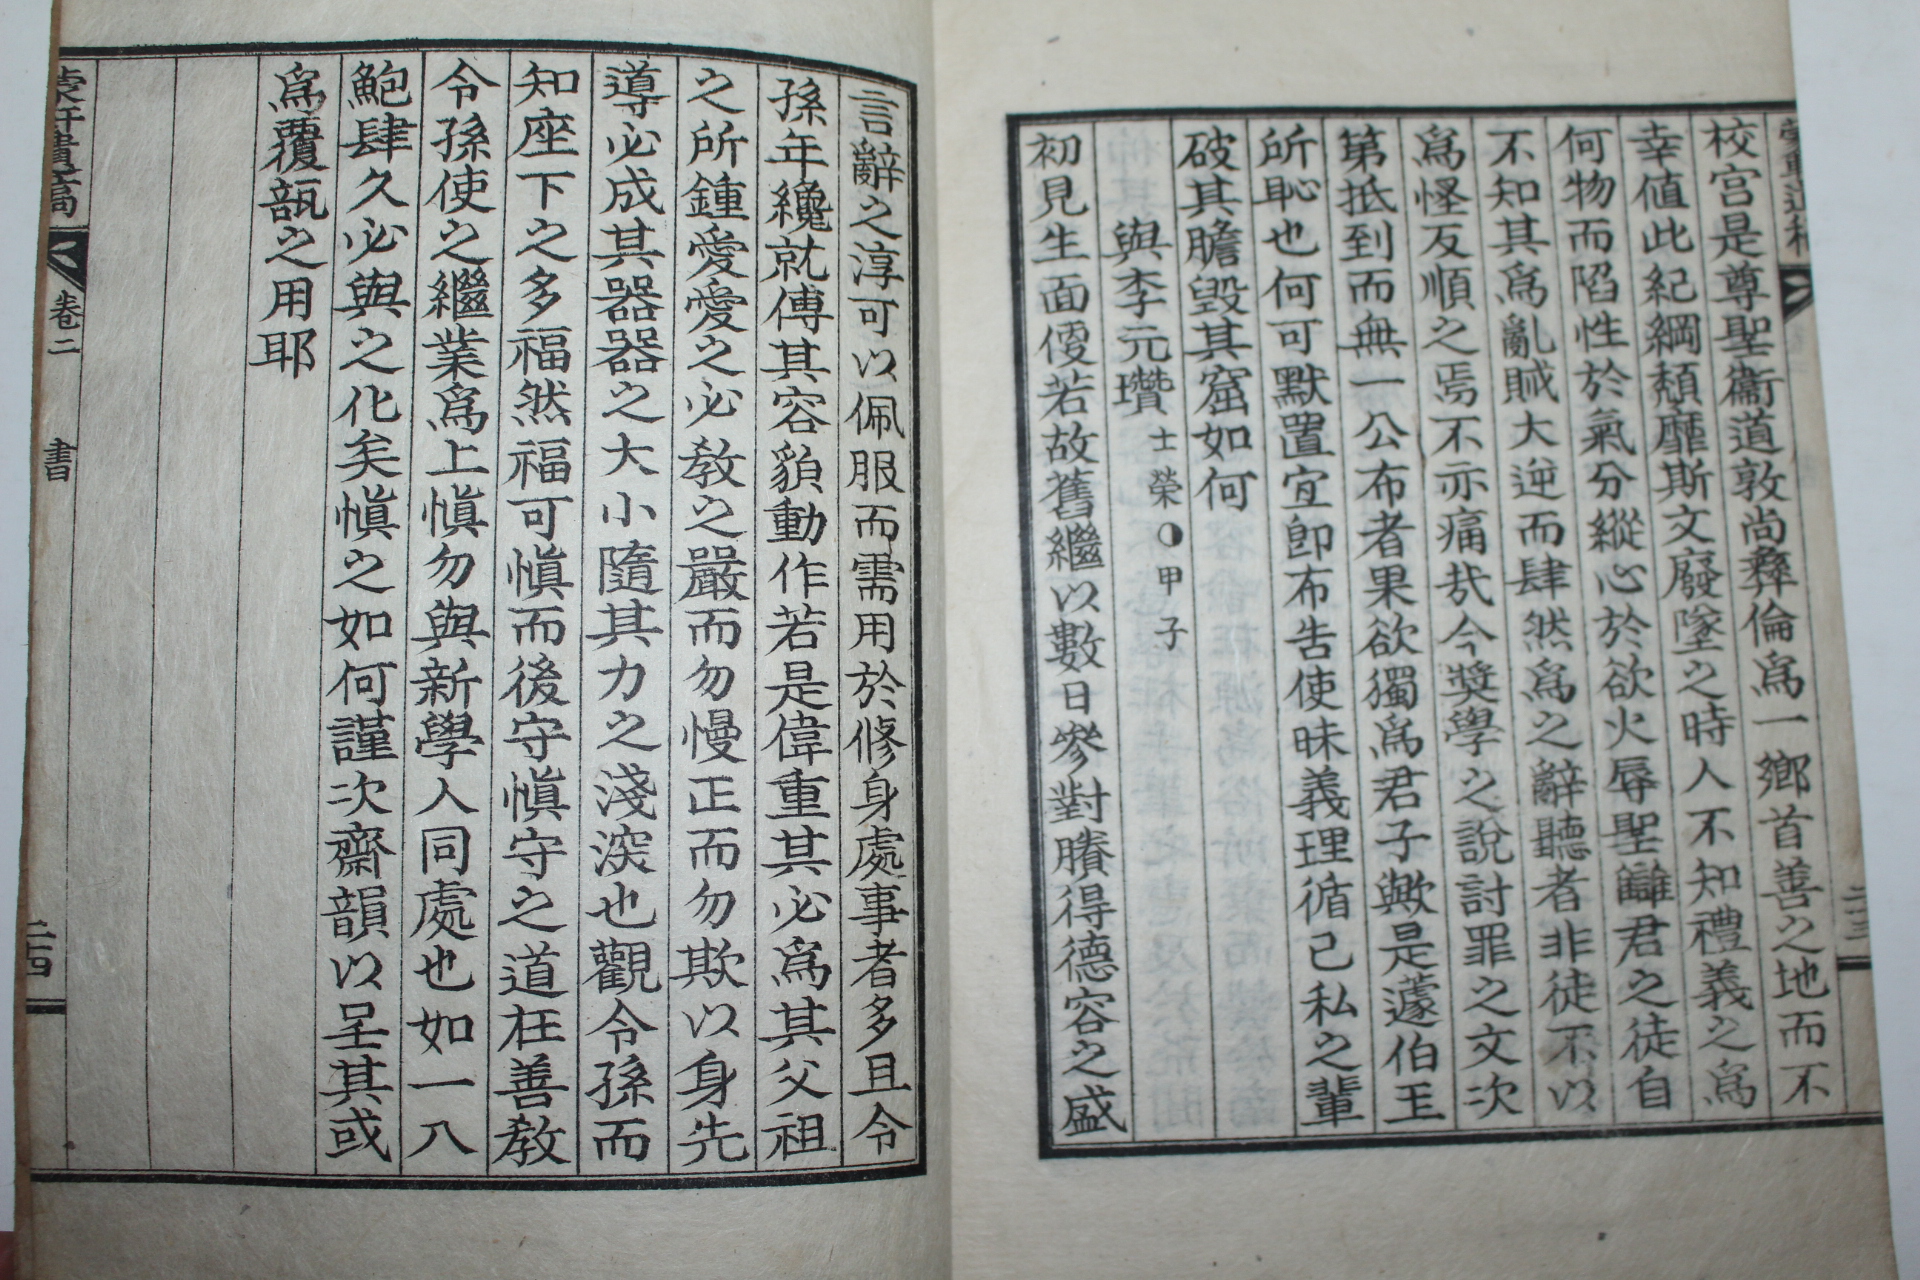 校宮是尊聖衞道敦尚彛倫爲一鄕首善之地而不
幸値此紀綱頹靡斯文廢墜之時人不知禮義之爲
何物而陷性於氣分縱心於欲火辱聖讎君之徒自
不知其爲亂賊大逆而肆然爲之辭聽者非徒不以
爲怪反順之焉不亦痛㢤今奬學之說討罪之文次
第抵到而無一公布者果欲獨爲君子歟是蘧伯玉
所恥也何可默置宜卽布告使昧義理循己私之輩
破其膽毁其窟如何
與李元瓚 士榮 甲子
初見生面優若故舊繼以數日叅對賸得德容之盛
言辭之淳可以佩服而需用於修身處事者多且令
孫年纔就傅其容貌動作若是偉重其必爲其父祖
之所鍾愛愛之必敎之嚴而勿慢正而勿欺以身先
導必成其器器之大小隨其力之淺深也觀令孫而
知座下之多福然福可愼而後守愼守之道在善敎
令孫使之繼業爲上愼勿與新學人同處也如一入
鮑肆久必與之化矣愼之如何謹次齋韻以呈其或
爲覆瓿之用耶
卷二
書
二四